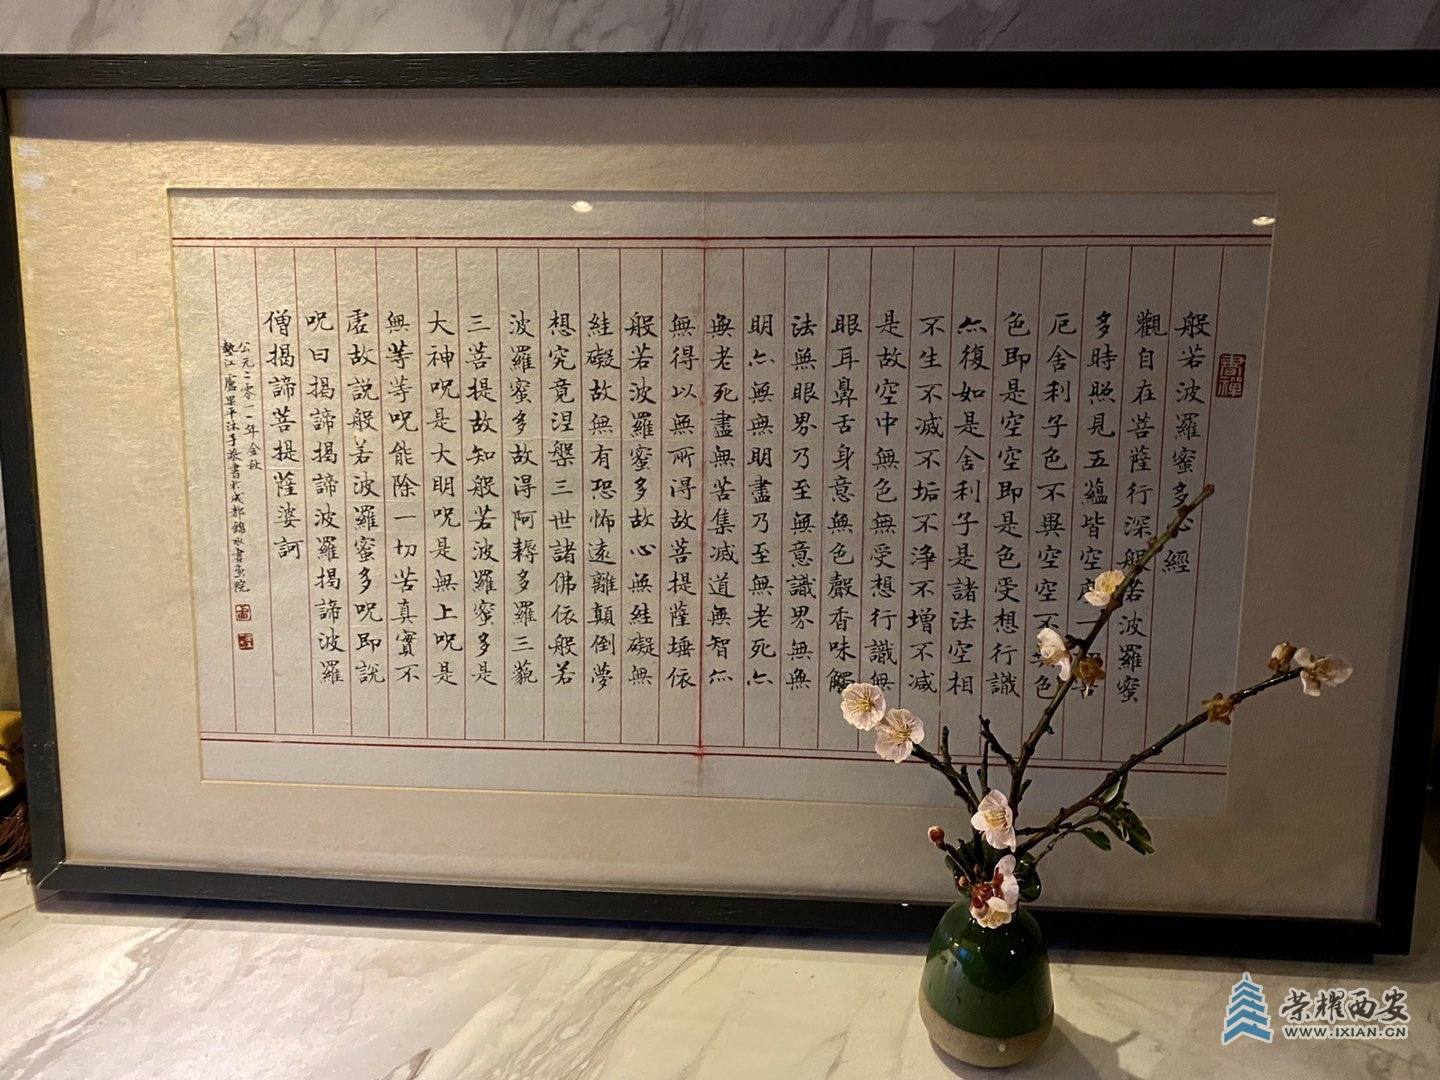 書禪
般若波羅蜜多心經
觀自在菩薩行深般若波羅蜜
多時照見五蘊皆空度一切苦
厄舍利子色不異空空不異色
色即是空空即是色受想行識
亦復如是舍利子是諸法空相
不生不滅不垢不淨不增不減
是故空中無色無受想行識無
眼耳鼻舌身意無色聲香味觸
法無眼界乃至無意識界無無
明亦無無明盡乃至無老死亦
無老死盡無苦集滅道無智亦
無得以無所得故菩提薩埵依
般若波羅蜜多故心無絓礙無
絓礙故無有恐怖遠離顛倒夢
想究竟涅槃三世諸佛依般若
波羅蜜多故得阿耨多羅三藐
三菩提故知般若波羅蜜多是
大神呪是大明呪是無上呪是
無等等呪能除一切苦真實不
虛故説般若波羅蜜多呪即説
呪曰揭諦揭諦波羅揭諦波羅
僧揭諦菩提薩婆訶
公元二零一一年金秋
墊江盧平沐手敬書於成都錦水書畫院
荣耀西安
WWW.IXIAN.CN